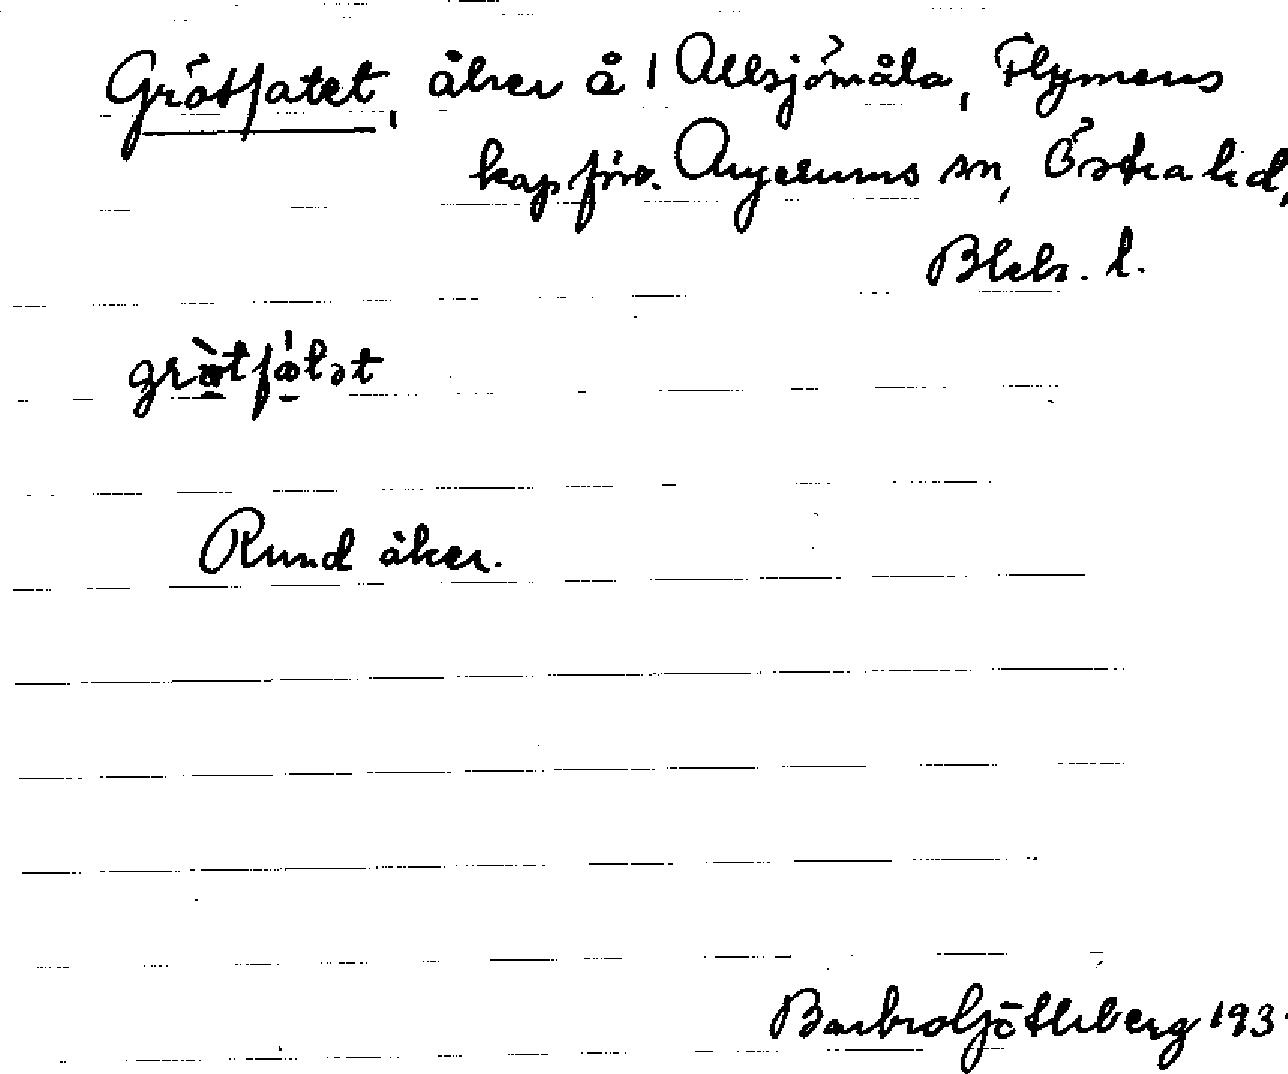 Grötfatet, åker å 1 Allsjömåla, Flymens
kapförs. Augerums sn, Östra hd,
Blek. l.
Rund åker.
Barbro Götleberg 193